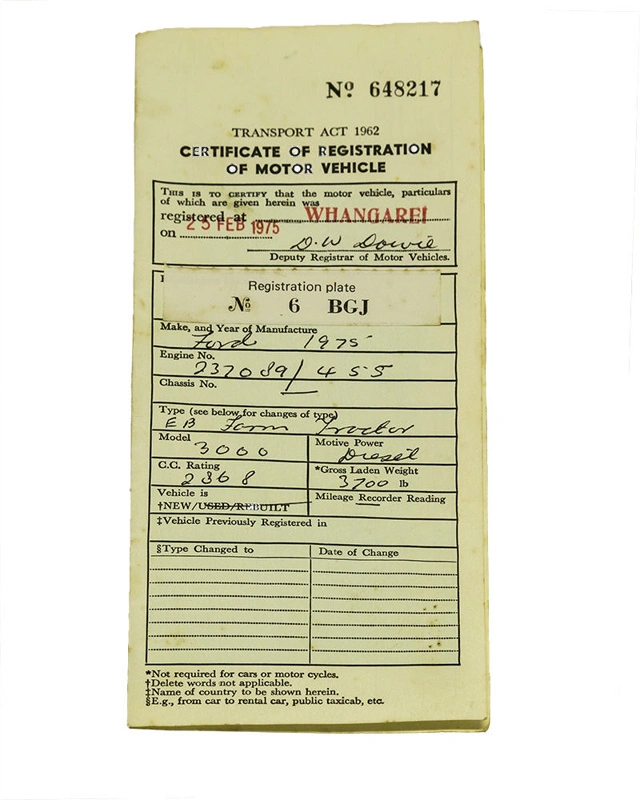 Nº 648217
TRANSPORT ACT 1962
CERTIFICATE OF REGISTRATION
OF MOTOR VEHICLE
THIS IS TO CERTIFY that the motor vehicle, particulars
of which are given herein was
registered at WHANGAREI
on 25 FEB 1975
D.W Dowie
Deputy Registrar of Motor Vehicles.
Registration plate
Nº 6 BGJ
Make, and Year of Manufacture
Ford 1975
Engine No.
237089/455
Chassis No.
Type (see below for changes of type)
EB Farm Tractor
Model
3000
Motive Power
Diesel
C.C. Rating
2368
*Gross Laden Weight
3700 lb
Vehicle is
†NEW/USED/REBUILT
Mileage Recorder Reading
‡Vehicle Previously Registered in
§Type Changed to
Date of Change
*Not required for cars or motor cycles.
†Delete words not applicable.
‡Name of country to be shown herein.
§E.g., from car to rental car, public taxicab, etc.